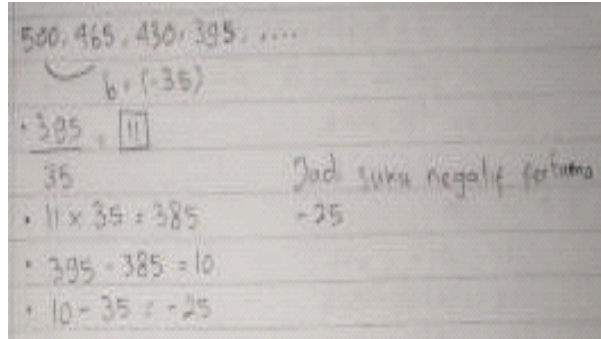 500, 465, 430, 395, ....
b = (-35)
• 395 = 11
35
• 11 x 35 = 385
• 395 - 385 = 10
• 10 - 35 = -25
Jadi suku negatif pertama
-25